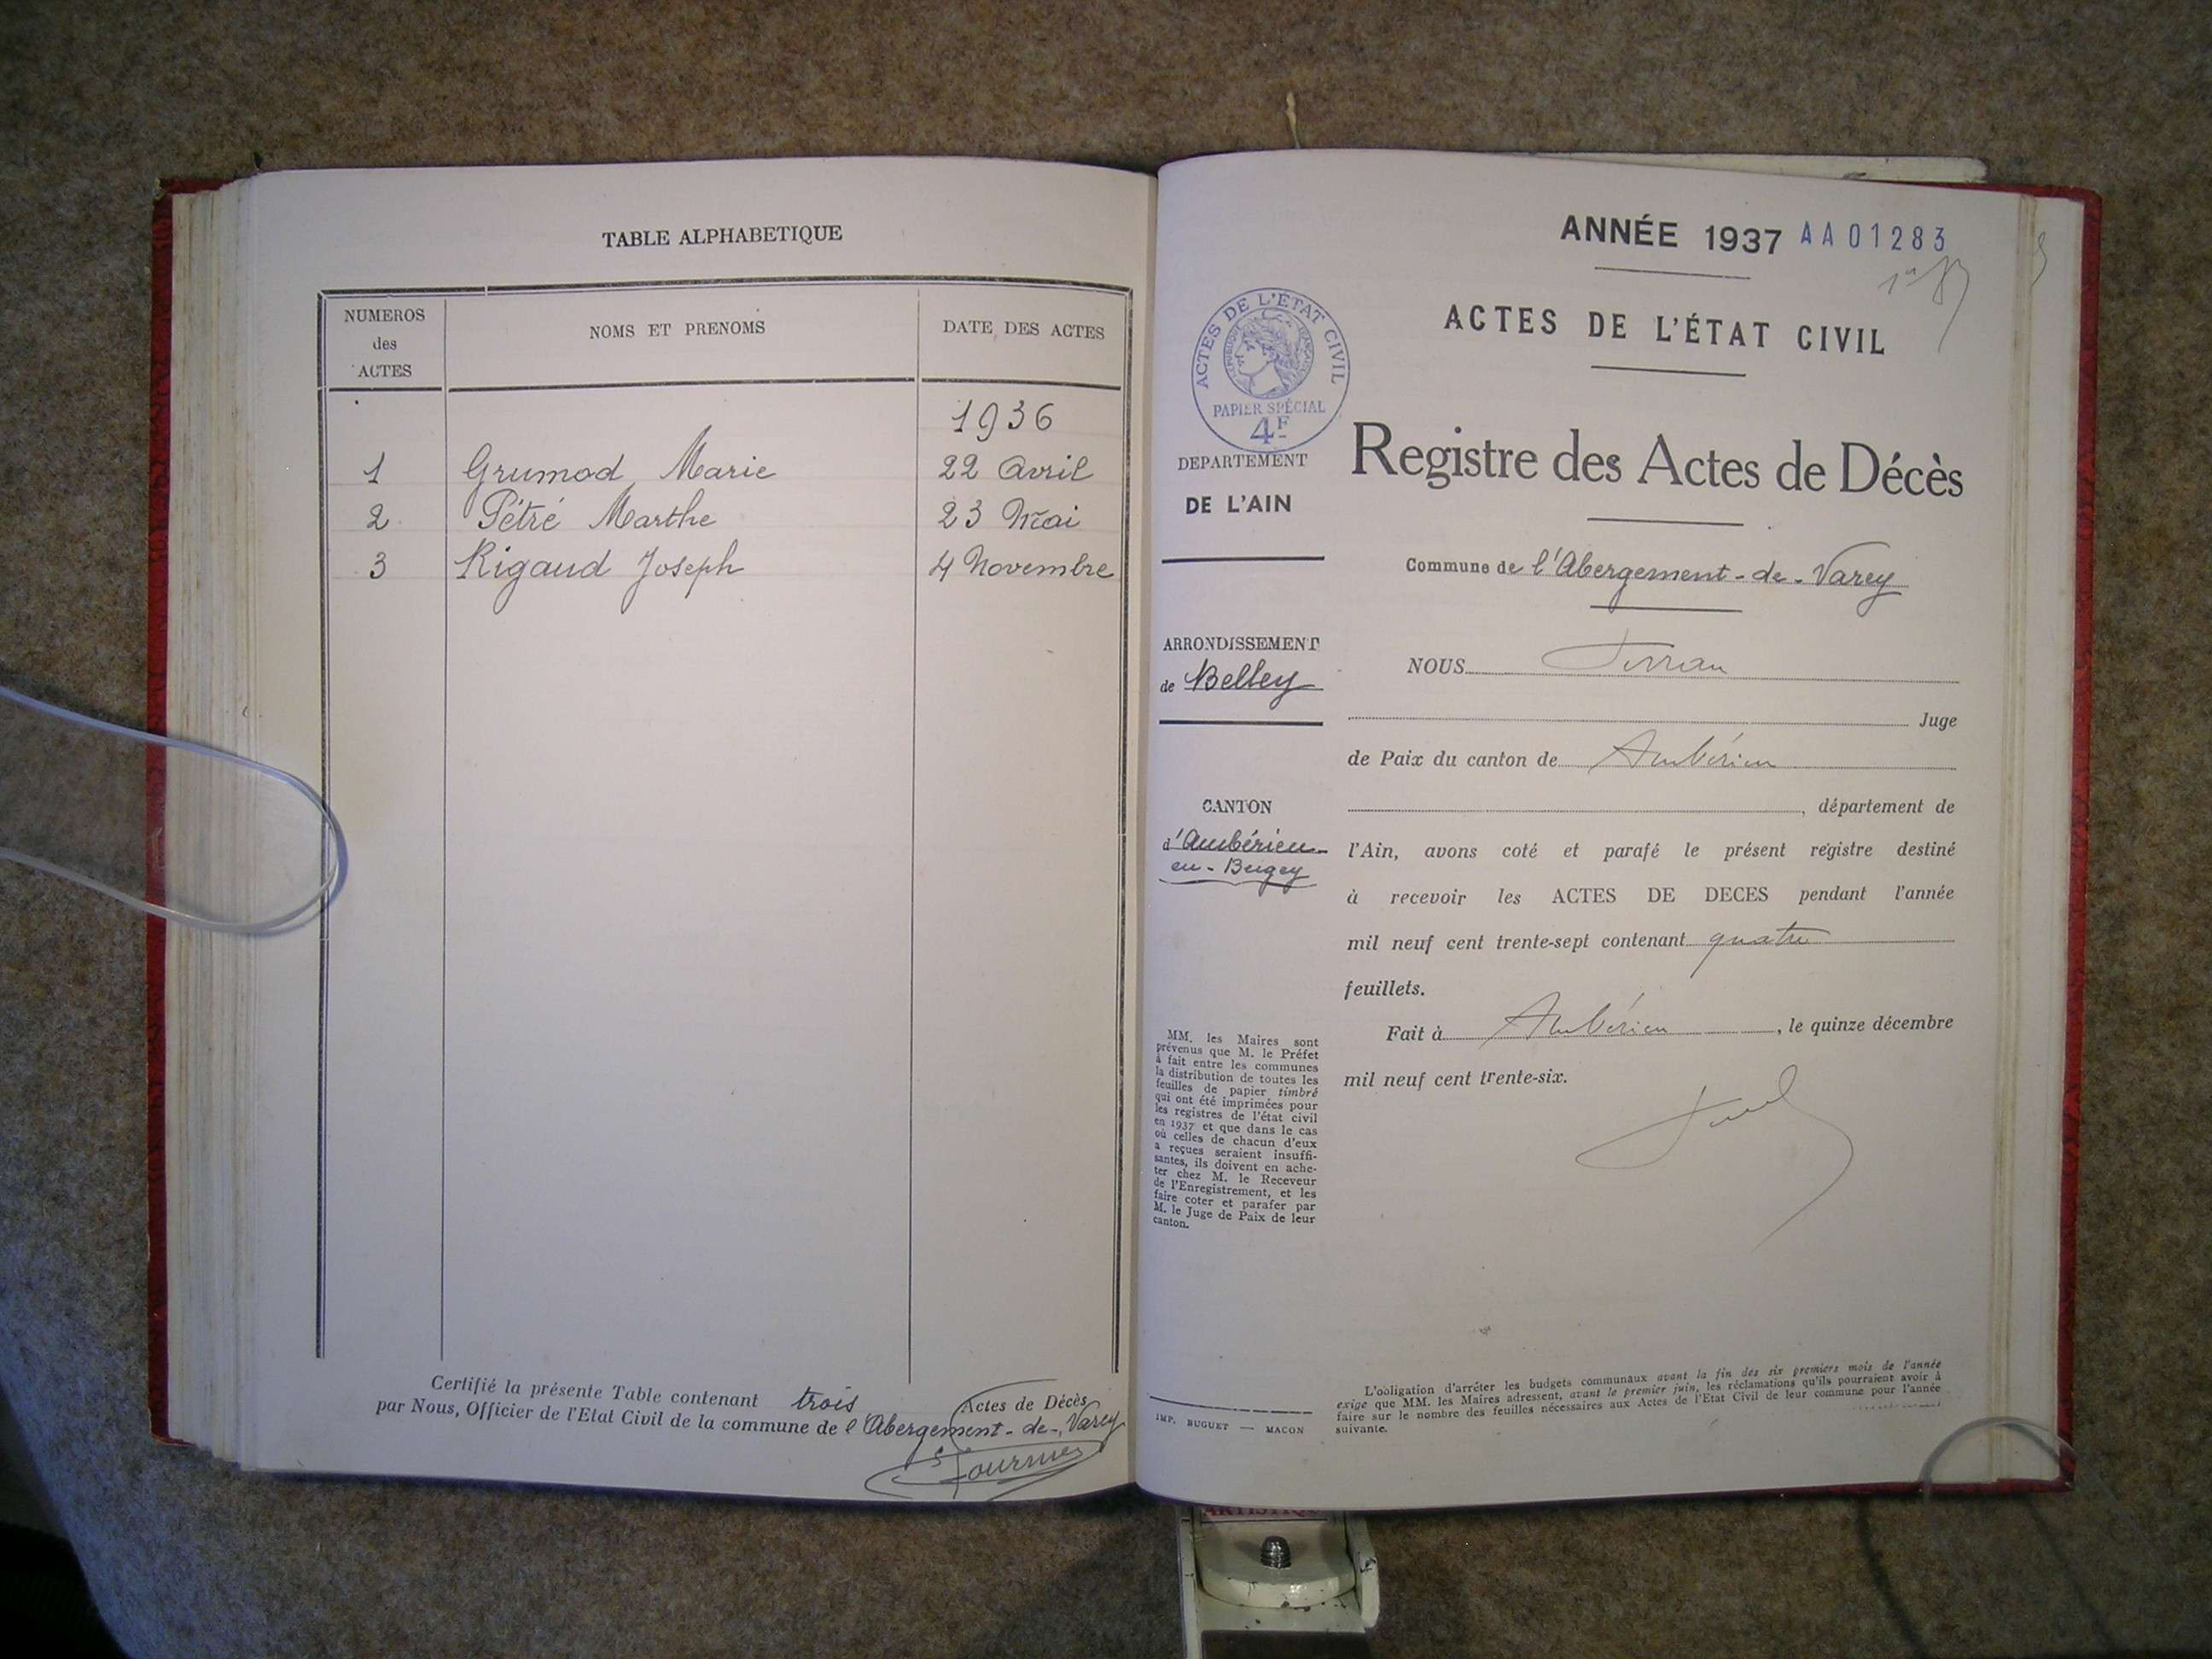 TABLE ALPHABETIQUE
NUMEROS
des
ACTES
NOMS ET PRENOMS
DATE DES ACTES
1936
1 Grumod Marie 22 Avril
2 Pétré Marthe 23 Mai
3 Rigaud Joseph 4 Novembre
Certifié la présente Table contenant trois Actes de Décès
par Nous, Officier de l'Etat Civil de la commune de l'Abergement-de-Varey
ANNÉE 1937 AA01283
ACTES DE L'ÉTAT CIVIL
ACTES DE L'ÉTAT CIVIL
RÉPUBLIQUE FRANÇAISE
PAPIER SPÉCIAL
4F
DEPARTEMENT
DE L'AIN
Registre des Actes de Décès
Commune de l'Abergement-de-Varey
ARRONDISSEMENT
de Belley
CANTON
d'Ambérieu-
en-Bugey
MM. les Maires sont
prévenus que M. le Préfet
à fait entre les communes
la distribution de toutes les
feuilles de papier timbré
qui ont été imprimées pour
les registres de l'état civil
en 1937 et que dans le cas
où celles de chacun d'eux
a reçues seraient insuffi-
santes, ils doivent en ache-
ter chez M. le Receveur
de l'Enregistrement, et les
faire coter et parafer par
M. le Juge de Paix de leur
canton.
IMP. BUGUET — MACON
NOUS
Juge
de Paix du canton de Ambérieu
, département de
l'Ain, avons coté et parafé le présent registre destiné
à recevoir les ACTES DE DECES pendant l'année
mil neuf cent trente-sept contenant quatre
feuillets.
Fait à Ambérieu, le quinze décembre
mil neuf cent trente-six.
L'obligation d'arrêter les budgets communaux avant la fin des six premiers mois de l'année
exige que MM. les Maires adressent, avant le premier juin, les réclamations qu'ils pourraient avoir à
faire sur le nombre des feuilles nécessaires aux Actes de l'Etat Civil de leur commune pour l'année
suivante.
ARTISTIQU